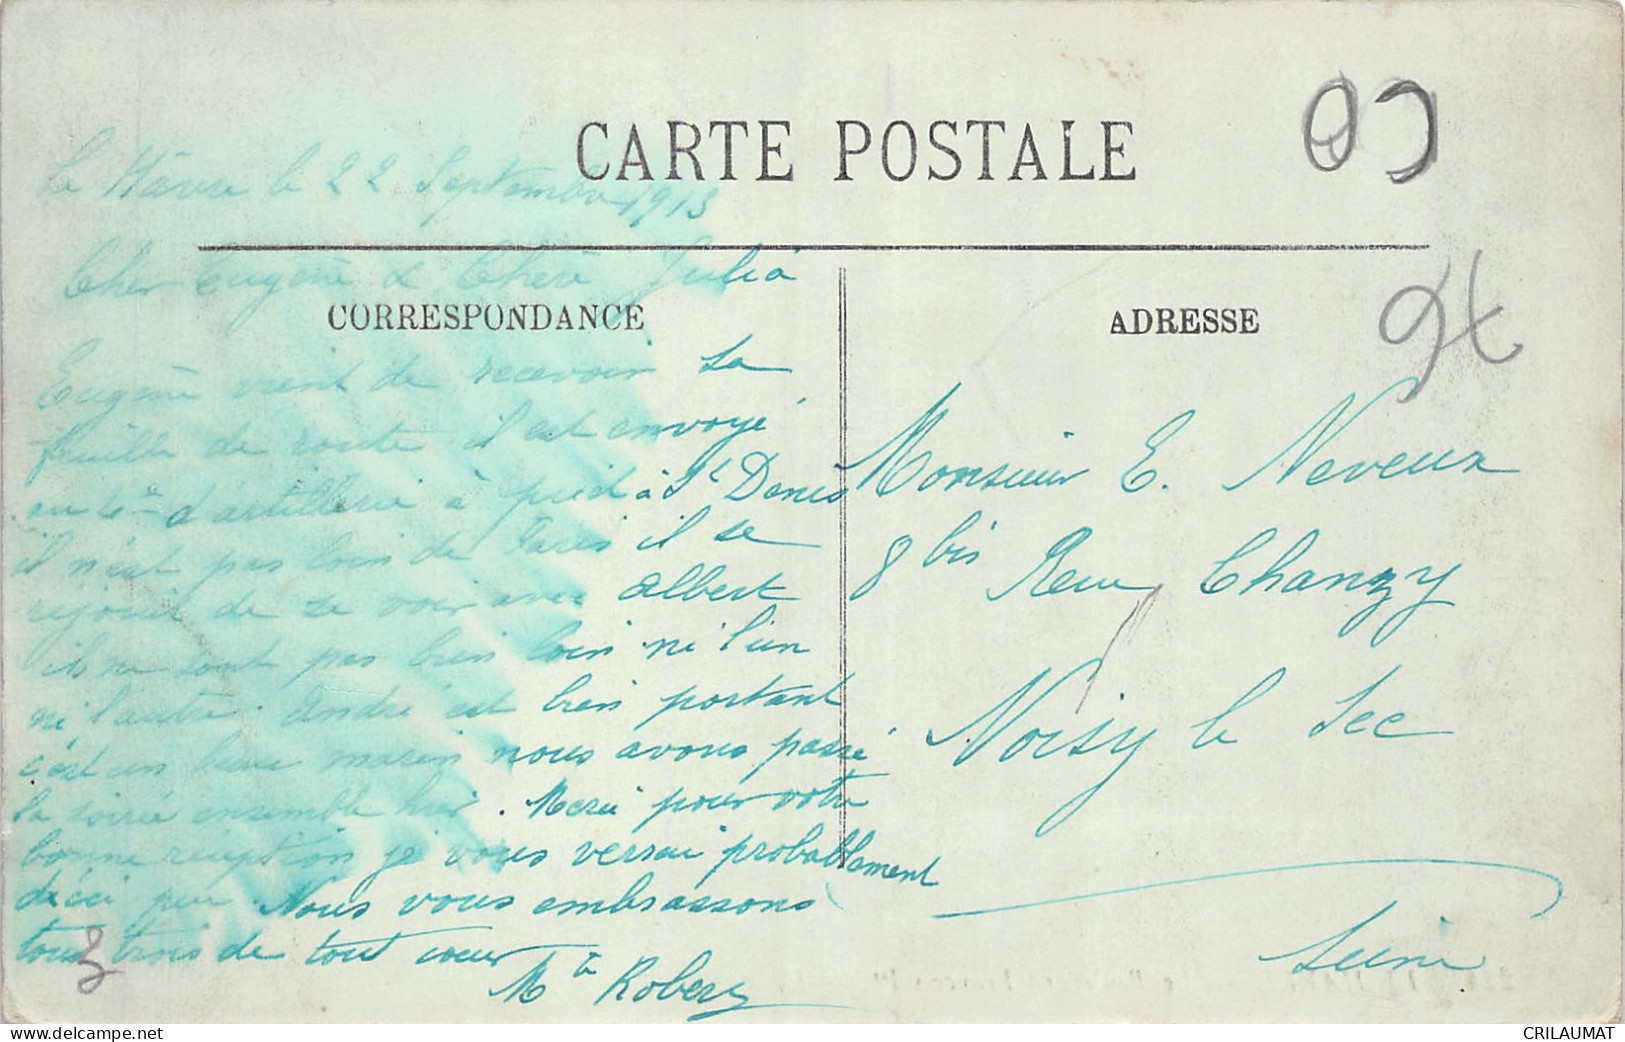 CARTE POSTALE
Le Hâvre le 22 Septembre 1913
Cher Eugène & Chère Julia
CORRESPONDANCE
Eugène vient de recevoir sa
feuille de route il est envoyé
au d'artillerie à pied à St Denis
il n'est pas loin de Paris il se
réjouit de se voir avec Albert
ils ne sont pas bien loin ni l'un
ni l'autre. André est bien portant
c'est un beau marin nous avons passé
la soirée ensemble hier. Merci pour votre
bonne réception je vous verrai probablement
d'ici peu. Nous vous embrassons
tous trois de tout coeur
Mte Robert
ADRESSE
Monsieur E. Neveux
8 bis Rue Chanzy
Noisy le Sec
Seine
3
delcampe.net
CRILAUMAT